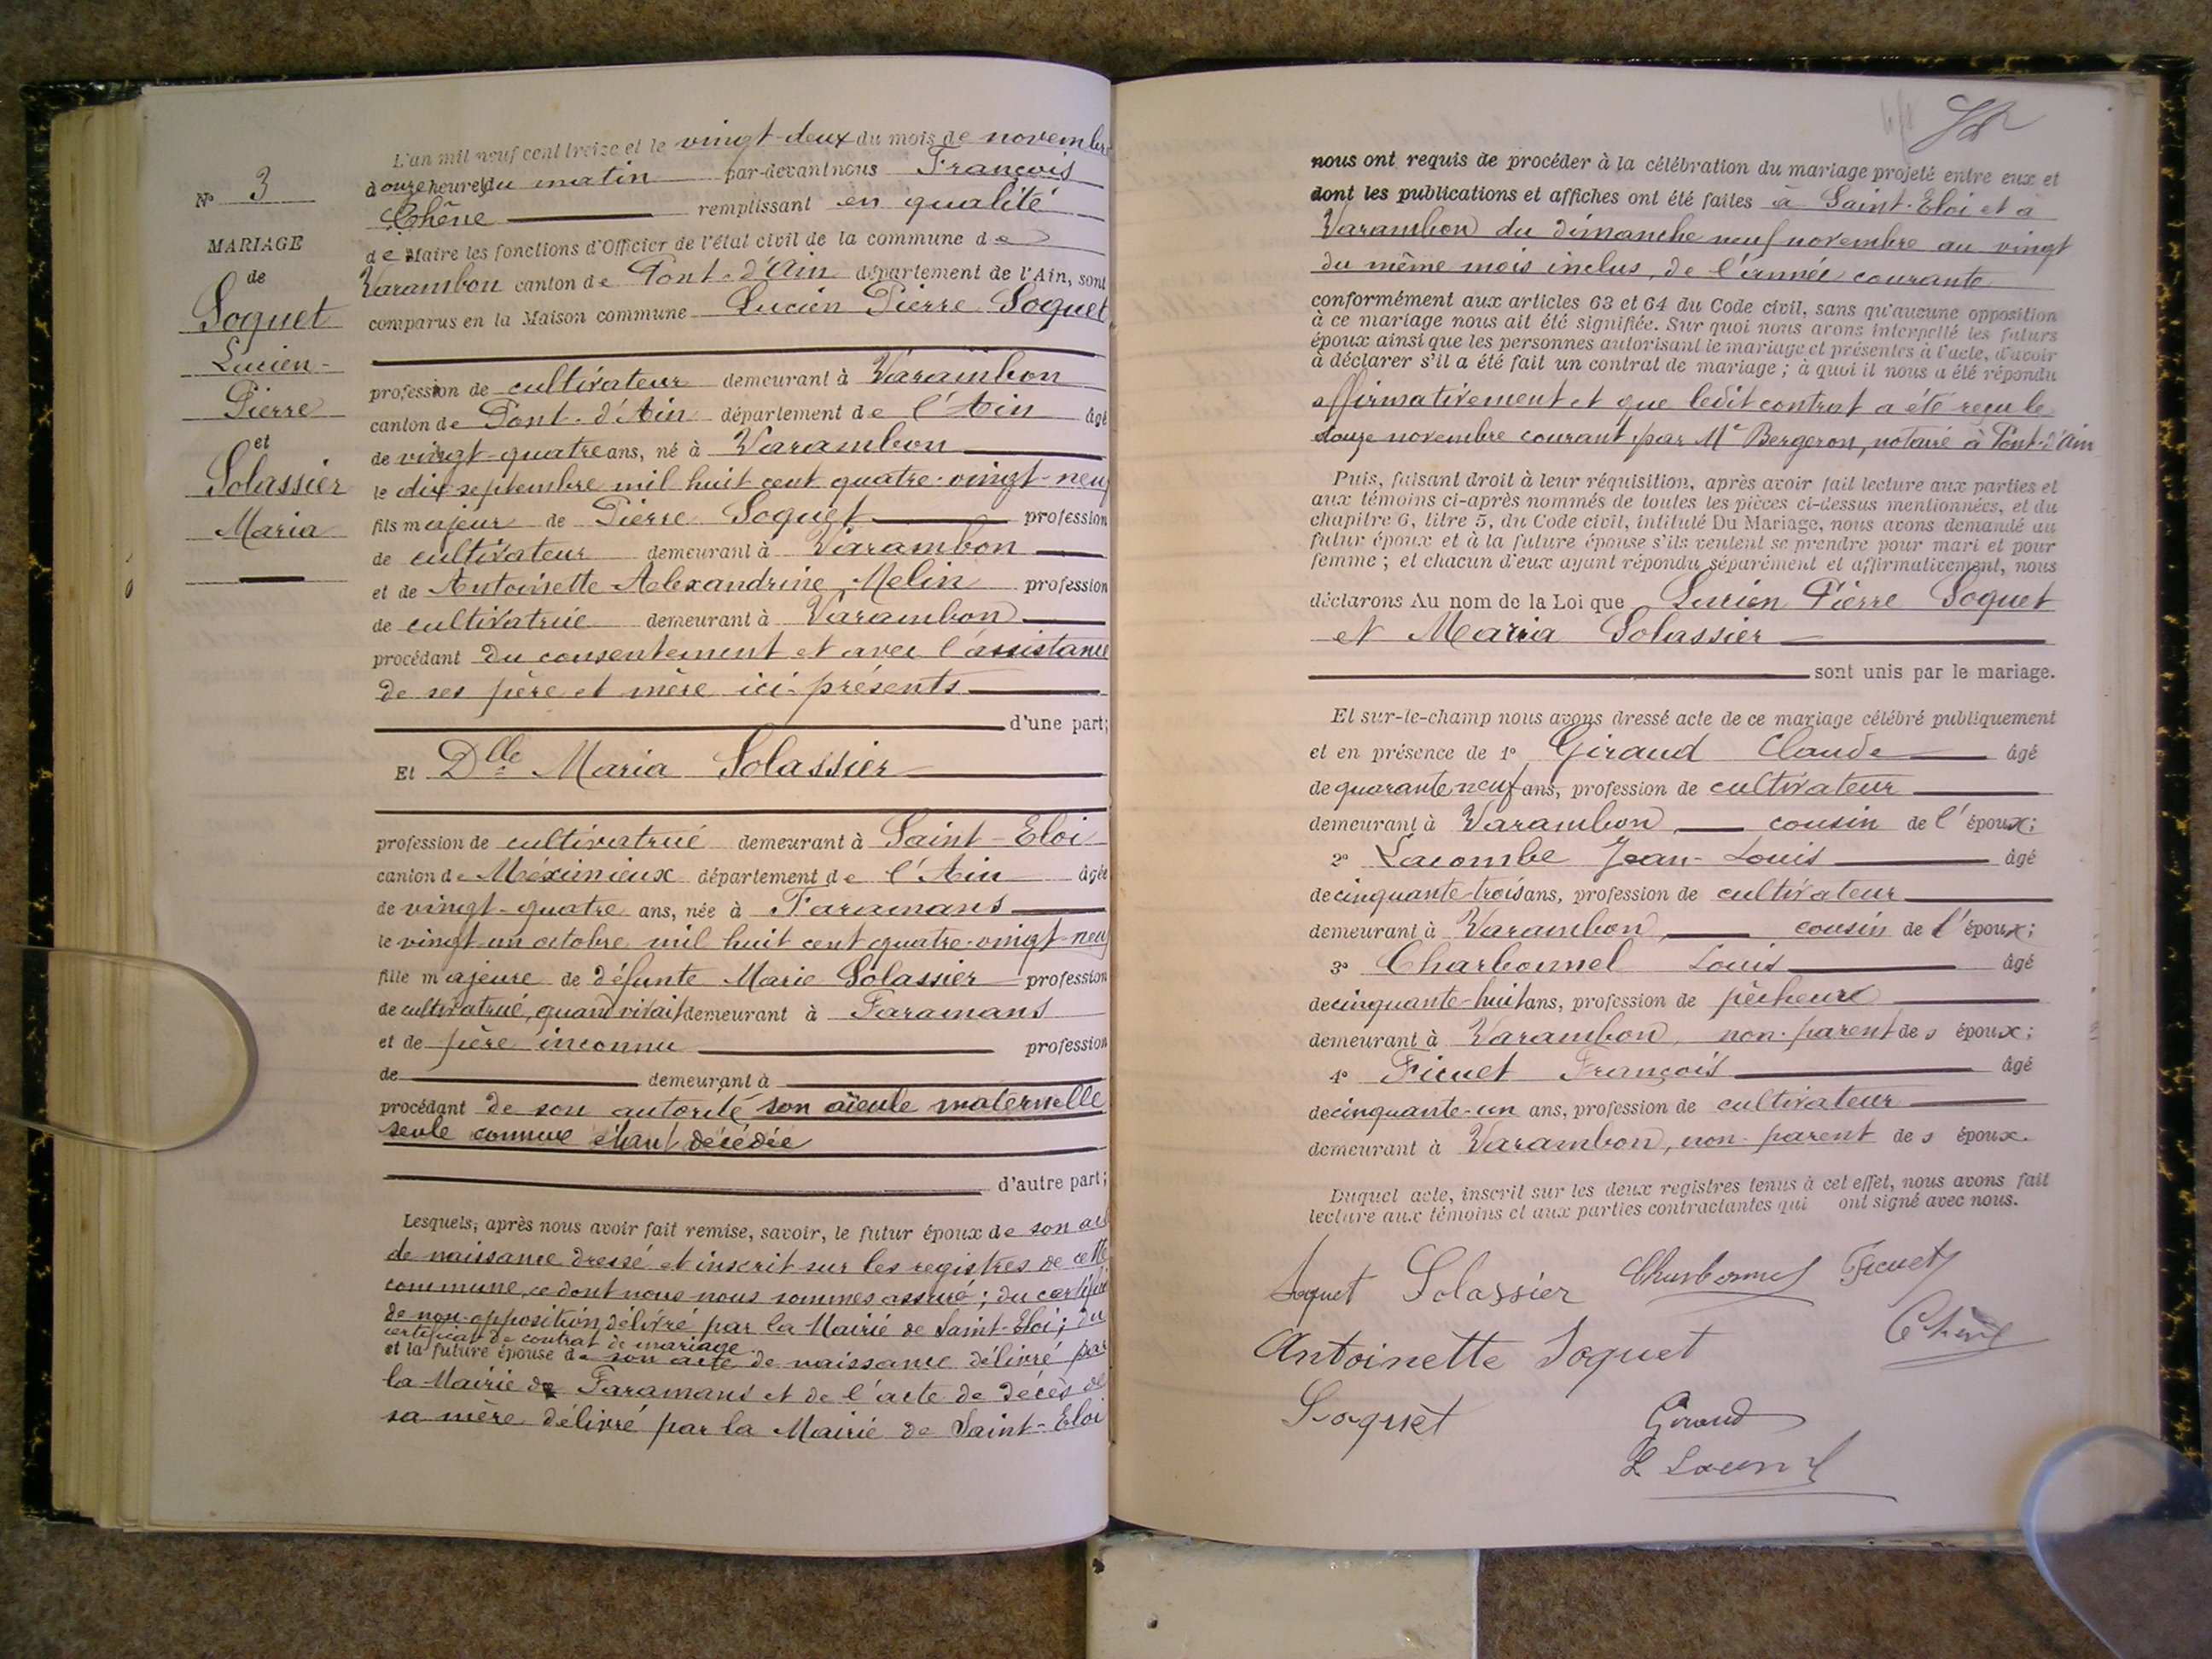 N° 3
MARIAGE
de
Soquet
Lucien-
Pierre
et
Solassier
Maria
L'an mil neuf cent treize et le vingt-deux du mois de novembre
douze heures du matin par-devant nous François
Chêne remplissant en qualité
de Maire les fonctions d'Officier de l'état civil de la commune de
Varambon canton de Pont-d'Ain département de l'Ain, sont
comparus en la Maison commune Lucien Pierre Soquet
profession de cultivateur demeurant à Varambon
canton de Pont-d'Ain département de l'Ain âgé
de vingt-quatre ans, né à Varambon
le dix septembre mil huit cent quatre-vingt-neuf
fils majeur de Pierre Soquet profession
de cultivateur demeurant à Varambon
et de Antoinette Alexandrine Melin profession
de cultivatrice demeurant à Varambon
procédant du consentement et avec l'assistance
de ses père et mère ici-présents
d'une part;
Et Dlle Maria Solassier
profession de cultivatrice demeurant à Saint-Eloi
canton de Méximieux département de l'Ain âgée
de vingt-quatre ans, née à Faramans
le vingt un octobre mil huit cent quatre-vingt-neuf
fille majeure de défunte Marie Solassier profession
de cultivatrice, quand vivait demeurant à Faramans
et de père inconnu profession
de demeurant à
procédant de son autorité son aïeule maternelle
seule connue étant décédée
d'autre part;
Lesquels, après nous avoir fait remise, savoir, le futur époux de son acte
de naissance dressé et inscrit sur les registres de cette
commune, ce dont nous nous sommes assuré; du certificat
de non-opposition délivré par la Mairie de Saint-Eloi; du
certificat de contrat de mariage.
et la future épouse de son acte de naissance délivré par
la Mairie de Faramans et de l'acte de décès de
sa mère délivré par la Mairie de Saint-Eloi
nous ont requis de procéder à la célébration du mariage projeté entre eux et
dont les publications et affiches ont été faites à Saint-Eloi et à
Varambon du dimanche neuf novembre au vingt
du même mois inclus, de l'année courante
conformément aux articles 63 et 64 du Code civil, sans qu'aucune opposition
à ce mariage nous ait été signifiée. Sur quoi nous avons interpellé les futurs
époux ainsi que les personnes autorisant le mariage et présentes à l'acte, d'avoir
à déclarer s'il a été fait un contrat de mariage; à quoi il nous a été répondu
affirmativement et que ledit contrat a été reçu le
douze novembre courant par Me Bergeron, notaire à Pont-d'Ain
Puis, faisant droit à leur réquisition, après avoir fait lecture aux parties et
aux témoins ci-après nommés de toutes les pièces ci-dessus mentionnées, et du
chapitre 6, titre 5, du Code civil, intitulé Du Mariage, nous avons demandé au
futur époux et à la future épouse s'ils veulent se prendre pour mari et pour
femme; et chacun d'eux ayant répondu séparément et affirmativement, nous
déclarons Au nom de la Loi que Lucien Pierre Soquet
et Maria Solassier
sont unis par le mariage.
Et sur-le-champ nous avons dressé acte de ce mariage célébré publiquement
et en présence de 1° Giraud Claude âgé
de quarante neuf ans, profession de cultivateur
demeurant à Varambon, cousin de l'époux;
2° Lacombe Jean-Louis âgé
de cinquante-trois ans, profession de cultivateur
demeurant à Varambon, cousin de l'époux;
3° Charbonnel Louis âgé
de cinquante-huit ans, profession de pêcheur
demeurant à Varambon, non-parent des époux;
4° Ficuet François âgé
de cinquante-un ans, profession de cultivateur
demeurant à Varambon, non-parent des époux.
Duquel acte, inscrit sur les deux registres tenus à cet effet, nous avons fait
lecture aux témoins et aux parties contractantes qui ont signé avec nous.
Soquet Solassier Charbonnel Ficuet
Antoinette Soquet Chêne
Soquet Giraud